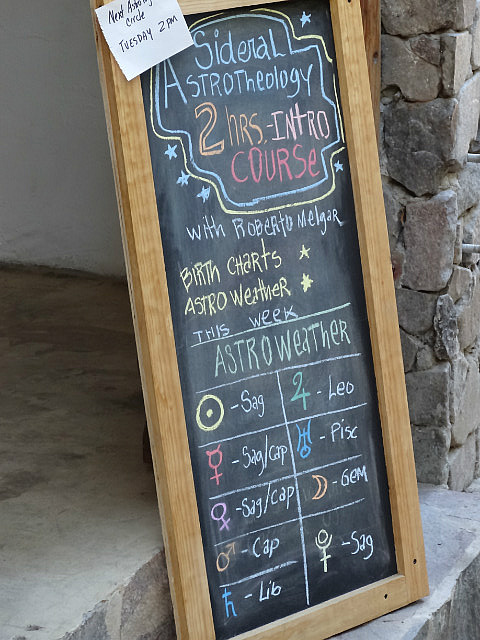 Next Astrology
Circle
TUESDAY 2pm
A Sideral
ASTROTheology
2 hrs. INTRO
COURSE
with Roberto Melgar
BIRTH CHARTS
ASTRO WEATHER
THIS WEEK
ASTROWeather
☉ - Sag
♃ - Leo
☿ - Sag/Cap
♅ - Pisc
♀ - Sag/Cap
☽ - GEM
♂ - Cap
- Sag
♄ - Lib